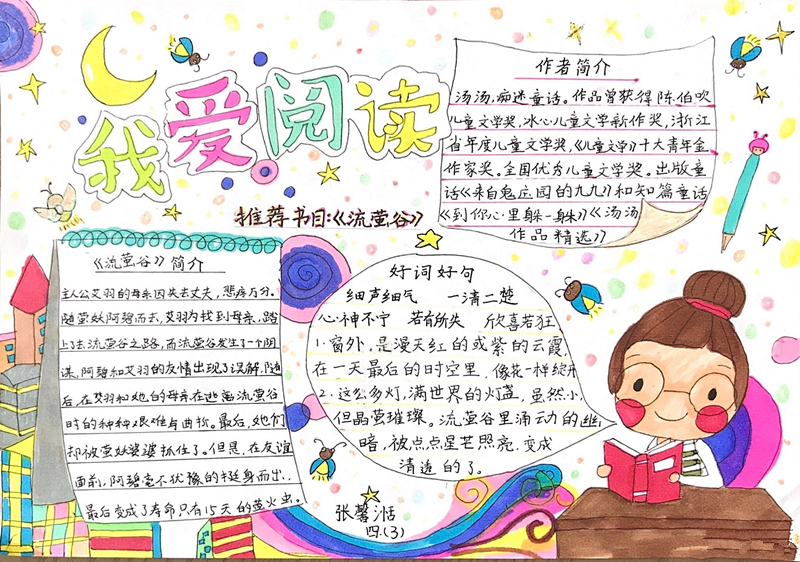 我爱阅读
推荐书目:《流萤谷》
作者简介
汤汤,痴迷童话。作品曾获得陈伯吹
儿童文学奖,冰心儿童文学新作奖,浙江
省年度儿童文学奖,《儿童文学》十大青年金
作家奖。全国优秀儿童文学奖。出版童
话《来自鬼庄园的九九》和短篇童话
《到你心里躲一躲》《汤汤
作品精选》
《流萤谷》简介
主人公艾羽的母亲因失去丈夫,悲痛万分。
随萤妖阿碧而去,艾羽为找到母亲,踏
上了去流萤谷之路,而流萤谷发生了一个阴
谋,阿碧和艾羽的友情出现了误解,随
后,在艾羽和她的母亲在逃离流萤谷
时的种种艰难与曲折。最后,她们
却被萤妖婆婆抓住了。但是,在友谊
面前,阿碧毫不犹豫的挺身而出,
最后变成了寿命只有15天的萤火虫。
好词好句
细声细气 一清二楚
心神不宁 若有所失 欣喜若狂
1.窗外,是漫天红的或紫的云霞,
在一天最后的时空里,像花一样绽开
2.这么多灯,满世界的灯盏,虽然小,
但晶莹璀璨。流萤谷里涌动的幽
暗,被点点星芒照亮,变成
清透的了。
张馨湉
四.(3)